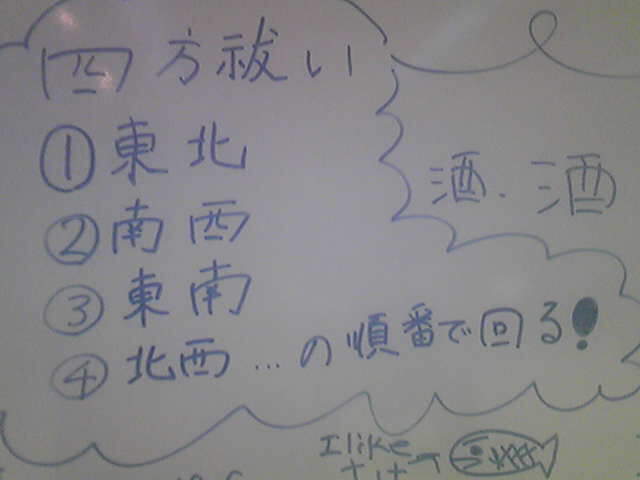 四方祓い
①東北
②南西
③東南
④北西…の順番で回る!
酒.酒
I like